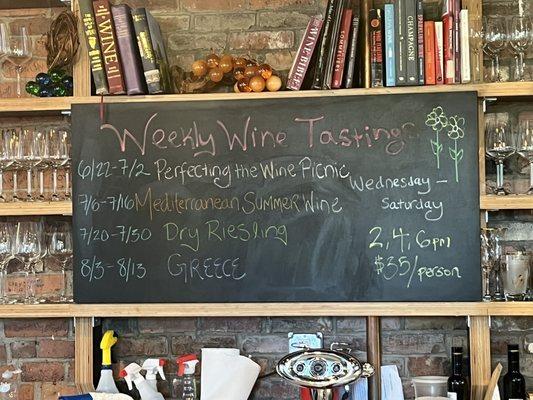 WINE!
CHAMPAGNE
THE WINE BIBLE
Weekly Wine Tastings
6/22-7/2 Perfecting the Wine Picnic
7/6-7/16 Mediterranean Summer Wine
7/20-7/30 Dry Riesling
8/3-8/13 GREECE
Wednesday -
Saturday
2, 4, 6pm
$35/person